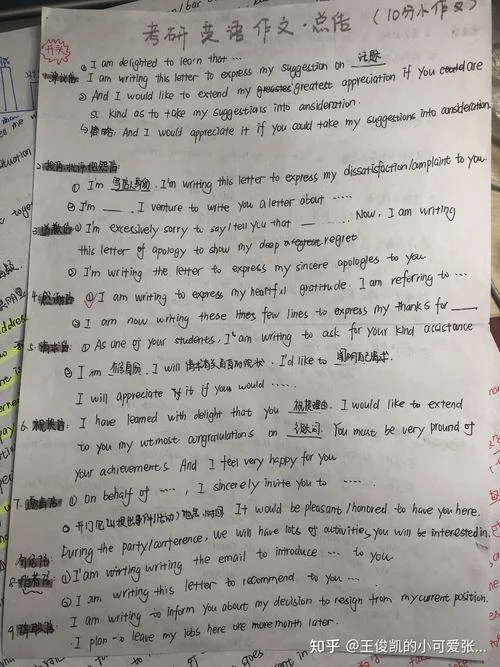 考研英语作文·总结 (10分小作文)
开头
① I am delighted to learn that …
I am writing this letter to express my suggestion on 话题
② And I would like to extend my greatest appreciation if you could are
so kind as to take my suggestions into ansideration.
简略: And I would appreciate it if you could take my suggestions into ansideration
2.
① I'm 写信人身份. I'm writing this letter to express my dissatisfaction/complaint to you
② I'm ____. I venture to write you a letter about ·····
3. 道歉信
① I'm excessively sorry to say/tell you that ____. Now, I am writing
this letter of apology to show my deep regret
② I'm writing the letter to express my sincere apologies to you
4. 感谢信
① I am writing to express my heartful gratitude. I am referring to …
② I am now writing these few lines to express my thanks for ____
5. 请求信
① As one of your students, I am writing to ask for your kind assistance
② I am 你的身份. I will 请求有关方面的现状. I'd like to 阐明自己请求.
I will appreciate it if you would ·····
6. 祝贺信
I have learned with delight that you 祝贺理由. I would like to extend
to you my utmost congratulations on 名词. You must be very pround of
your achievements. And I feel very happy for you
7. 邀请信
① On behalf of ·····, I sincerely invite you to ·····
② 时间 It would be pleasant/honored to have you here.
During the party/conference, we will have lots of activities you will be interested in.
8. 推荐信
① I'am writing the email to introduce … to you
② I am writing this letter to recommend to you …
9. 辞职信
I am writing to inform you about my decision to resign from my current position.
I plan to leave my jobs here one more month later.
知乎 @王俊凯的小可爱张...